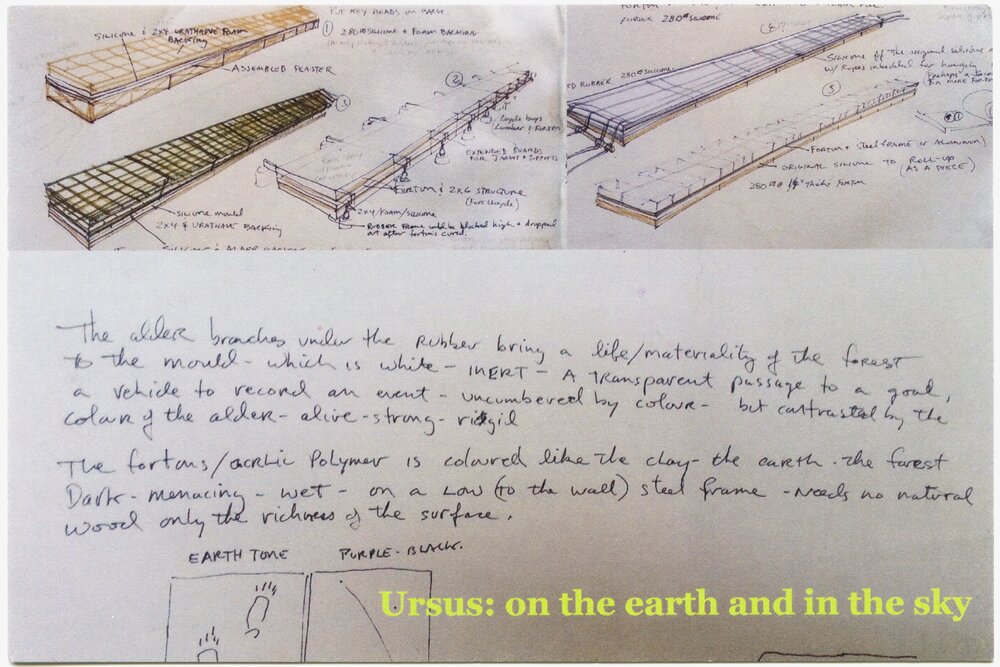 PUT KEY BEADS ON BACK
① 280 SILICONE + FOAM BACKING
SILICONE & 2X4 URATHANE FOAM
BACKING
ASSEMBLED PLASTER
③
②
EXTENDED BOARDS
FORTON & 2X6 STRUCTURE
2X4/FOAM/SILICONE
RUBBER FRAME will be blocked high + dropped
out after forton's cured.
SILICONE mould
2X4 & URATHANE BACKING
RUBBER 280 SILICONE
RUBBER 280 SILICONE
SILICONE off the original silicone
w/ Ropes imbedded for hanging
⑤
FORTON & Steel FRAME (OR ALUMINUM)
ORIGINAL SILICONE TO ROLL-UP
(AS A PIECE)
The alder branches under the rubber bring a life/materiality of the forest
to the mould - which is white - INERT - A transparent passage to a goal,
a vehicle to record an event - uncumbered by colour - but contrasted by the
colour of the alder - alive - strong - ridgid
The fortons/acrlic Polymer is coloured like the clay - the earth - the forest
Dark - menacing - wet - on a low (to the wall) steel frame - needs no natural
wood only the richness of the surface.
EARTH TONE PURPLE-BLACK.
Ursus: on the earth and in the sky